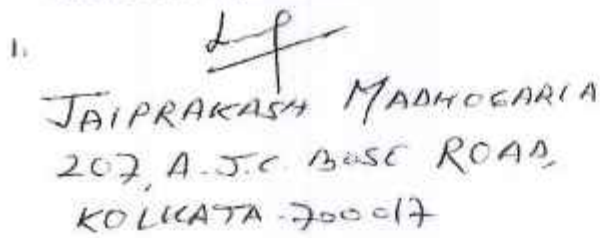 1.
JAIPRAKASH MADHOGARIA
207, A.J.C. BOSE ROAD,
KOLKATA-700017